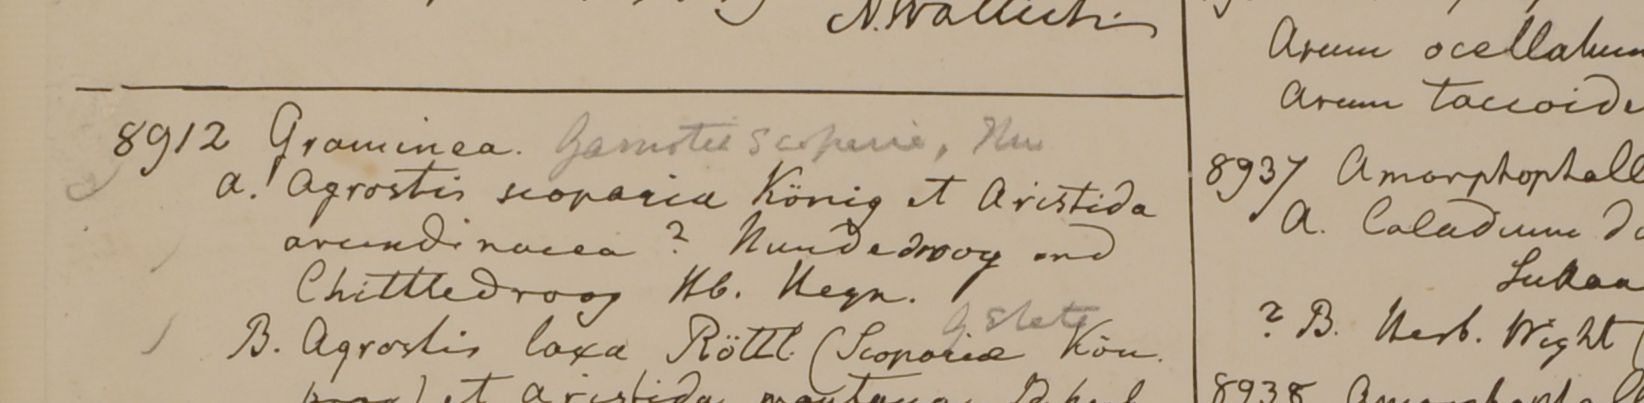 N. Wallich
8912 Graminea.
a. Agrostis scoparia König et Aristida
arundinacea? Nundedroog and
Chittledroog Hb. Heyn.
B. Agrostis laxa Röttl. (Scopariæ Kön.
et Aristida montana
Arum ocellatum
Arum taccoide
8937 Amorphophall
A. Caladium
? B. Herb. Wight (
8938